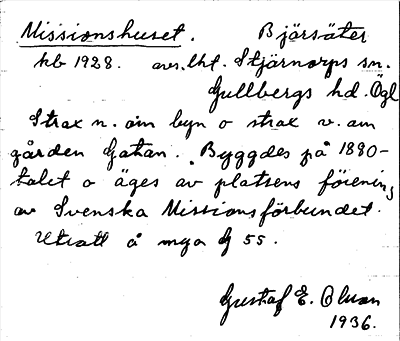 Missionshuset. Björsäter
kb 1928. avs. lht. Stjärnorps sn.
Gullbergs hd. Ögl
Strax n. om byn o strax v. om
gården Gatan. Byggdes på 1880-
talet o äges av platsens förening
av Svenska Missionsförbundet.
Uttalt å mga 55.
Gustaf E. Olsson
1936.